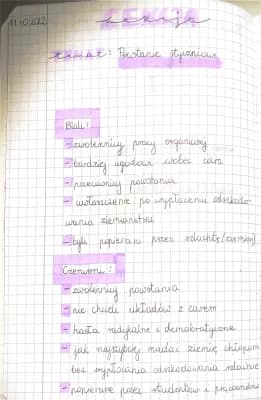 11.10.22
Lekcja
Temat: Powstanie styczniowe
Biali:
- zwolennicy pracy organicznej
- bardziej ugodowi wobec cara
- przeciwnicy powstania
- uwłaszczenie po wypłaceniu odszkodo-
wania ziemiaństwu
- byli popierani przez szlachtę (ziemian)
Czerwoni:
- zwolennicy powstania
- nie chcieli układów z carem
- hasła radykalne i demokratyczne
- jak najszybciej nadać ziemię chłopom
bez wypłacania odszkodowania szlachcie
- popierane przez studentów i